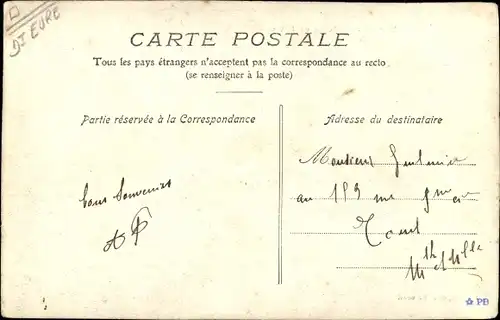 Dt EURE
CARTE POSTALE
Tous les pays étrangers n'acceptent pas la correspondance au recto.
(se renseigner à la poste)
Partie réservée à la Correspondance
Adresse du destinataire
Monsieur
au
bons souvenirs
PB